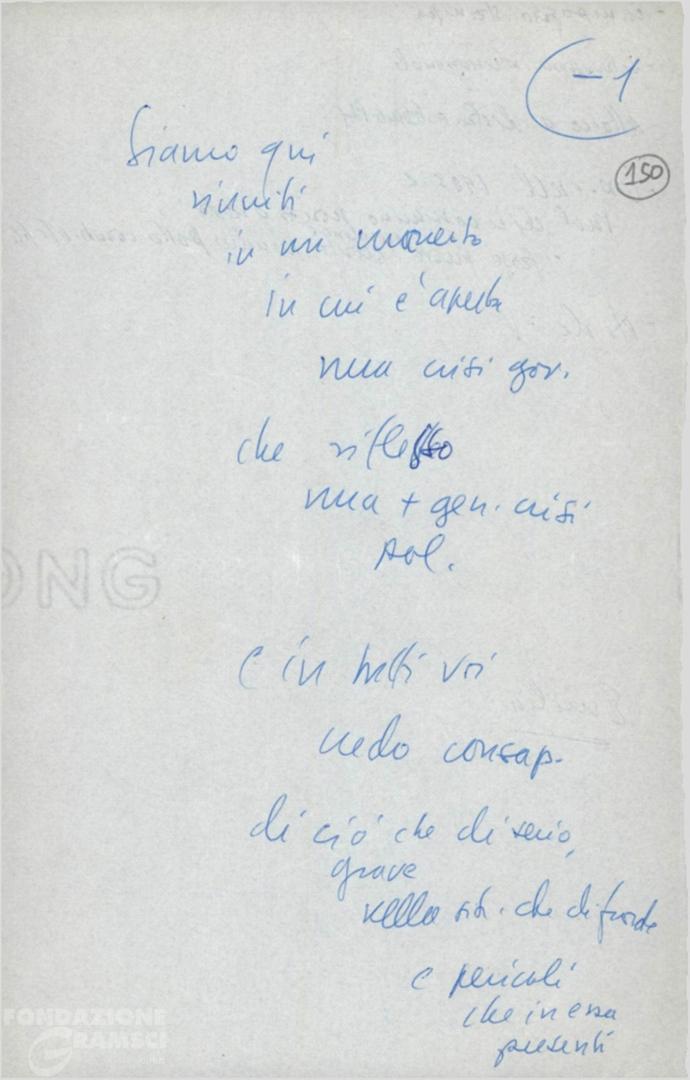 - 1
150
Siamo qui
riuniti
in un momento
in cui è aperta
una crisi gov.
che riflesso
una + gen. crisi
pol.
E in tutti voi
vedo consap.
di ciò che di serio,
grave
nella sit. che di fronte
e pericoli
che in essa
presenti
ONG
FONDAZIONE
GRAMSCI